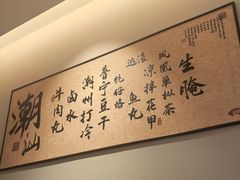 生腌
凤凰单枞茶
凉拌花甲
达濠鱼丸
蚝仔烙
普宁豆干
潮州打冷
卤水
牛肉丸
潮汕